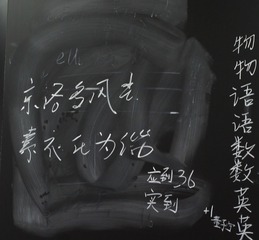 京洛多风尘
素衣化为缁
应到36
实到
物
物
语
语
数
数
英
英
+1